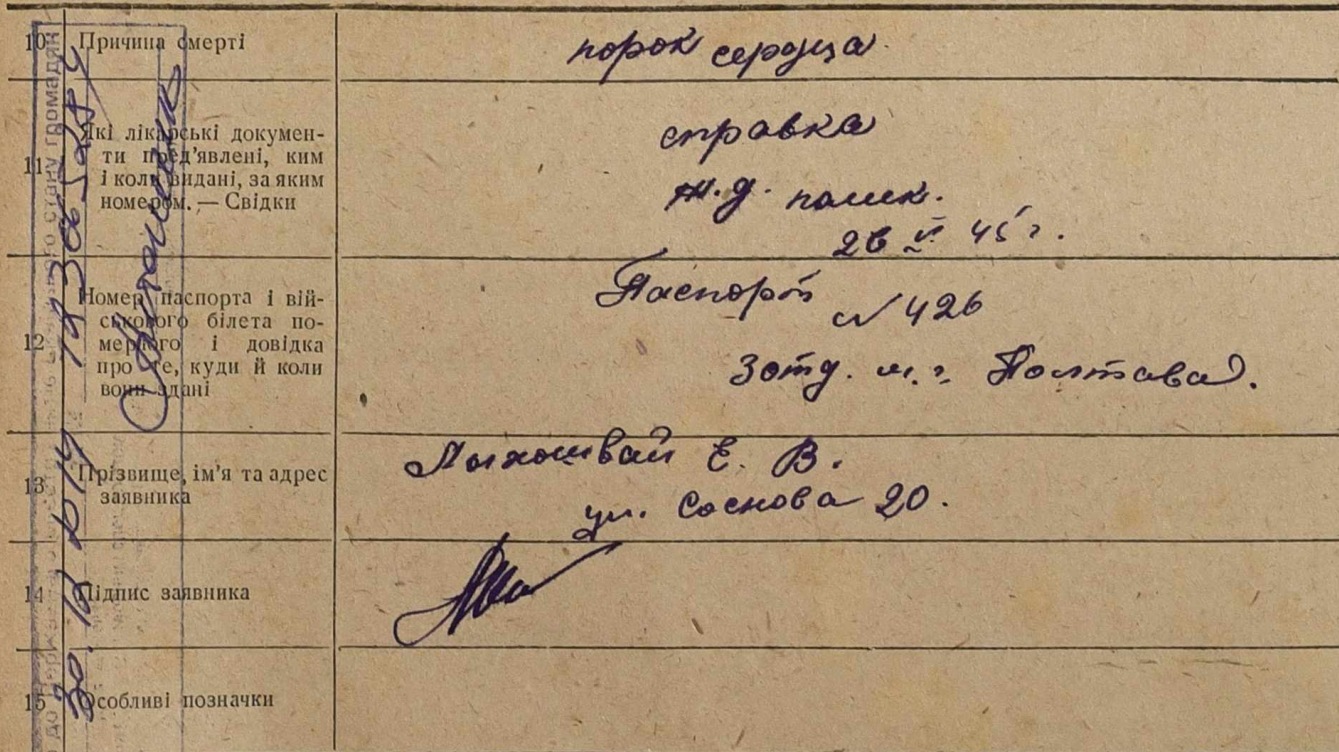 10 Причина смерті
порок сердца
11 Які лікарські докумен-
ти пред'явлені, ким
і коли видані, за яким
номером. — Свідки
справка
ж.д. полик.
26 VI 45 г.
12 Номер паспорта і вій-
ськового білета по-
мерлого і довідка
про те, куди й коли
вони здані
Паспорт
№ 426
3 отд. м. г. Полтава.
13 Прізвище, ім'я та адрес
заявника
Лыхошвай Е. В.
ул. Соснова 20.
14 Підпис заявника
15 Особливі позначки
стану громадян
30. 12 2014